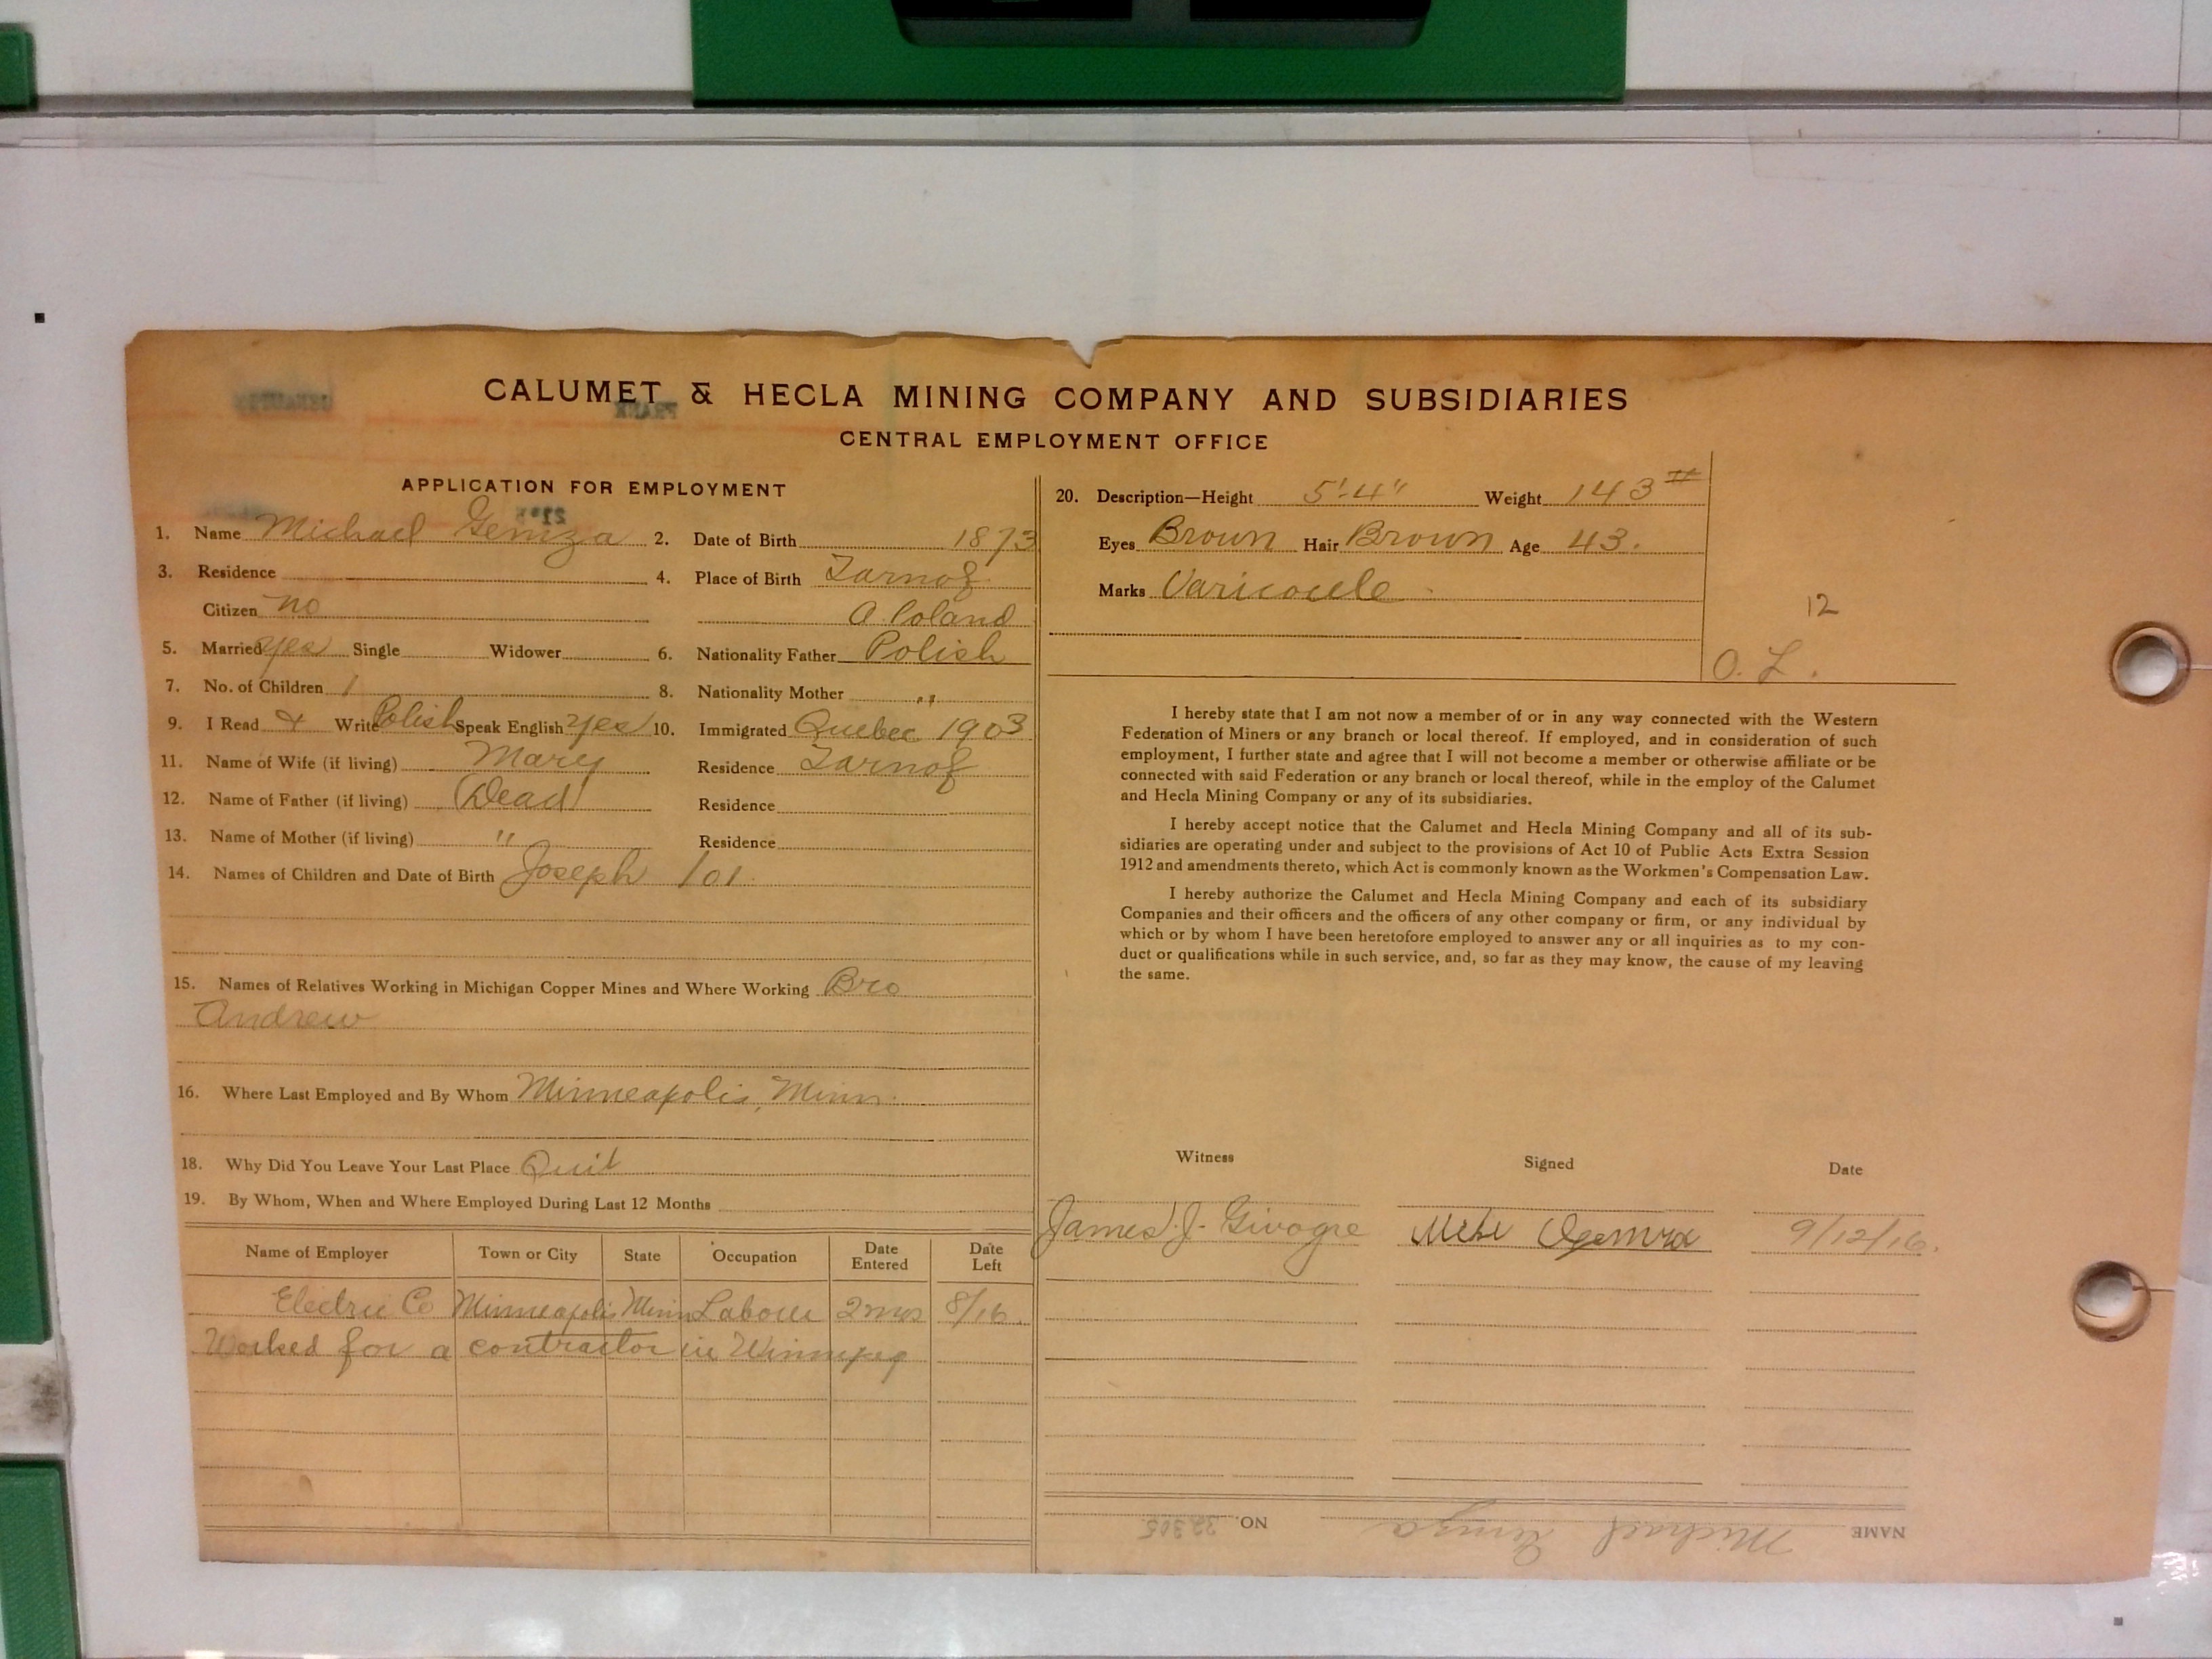 CALUMET & HECLA MINING COMPANY AND SUBSIDIARIES
CENTRAL EMPLOYMENT OFFICE
APPLICATION FOR EMPLOYMENT
1. Name Michael Gemza 2. Date of Birth 1873
3. Residence 4. Place of Birth Tarnof
Citizen no A. Poland
5. Married yes Single Widower 6. Nationality Father Polish
7. No. of Children 1 8. Nationality Mother "
9. I Read & Write Polish Speak English yes 10. Immigrated Quebec 1903
11. Name of Wife (if living) Mary Residence Tarnof
12. Name of Father (if living) (Dead) Residence
13. Name of Mother (if living) " Residence
14. Names of Children and Date of Birth Joseph 101
15. Names of Relatives Working in Michigan Copper Mines and Where Working Bro
Andrew
16. Where Last Employed and By Whom Minneapolis, Minn.
18. Why Did You Leave Your Last Place Quit
19. By Whom, When and Where Employed During Last 12 Months
Name of Employer Town or City State Occupation Date Entered Date Left
Electric Co Minneapolis Minn Labour 2 mos 8/16.
Worked for a contractor in Winnipeg
20. Description—Height 5'-4" Weight 143 #
Eyes Brown Hair Brown Age 43.
Marks Varicocele
12
O. L.
I hereby state that I am not now a member of or in any way connected with the Western
Federation of Miners or any branch or local thereof. If employed, and in consideration of such
employment, I further state and agree that I will not become a member or otherwise affiliate or be
connected with said Federation or any branch or local thereof, while in the employ of the Calumet
and Hecla Mining Company or any of its subsidiaries.
I hereby accept notice that the Calumet and Hecla Mining Company and all of its sub-
sidiaries are operating under and subject to the provisions of Act 10 of Public Acts Extra Session
1912 and amendments thereto, which Act is commonly known as the Workmen's Compensation Law.
I hereby authorize the Calumet and Hecla Mining Company and each of its subsidiary
Companies and their officers and the officers of any other company or firm, or any individual by
which or by whom I have been heretofore employed to answer any or all inquiries as to my con-
duct or qualifications while in such service, and, so far as they may know, the cause of my leaving
the same.
Witness Signed Date
James J. Givogre 9/12/16.
NAME Michael Gemza NO. 32305